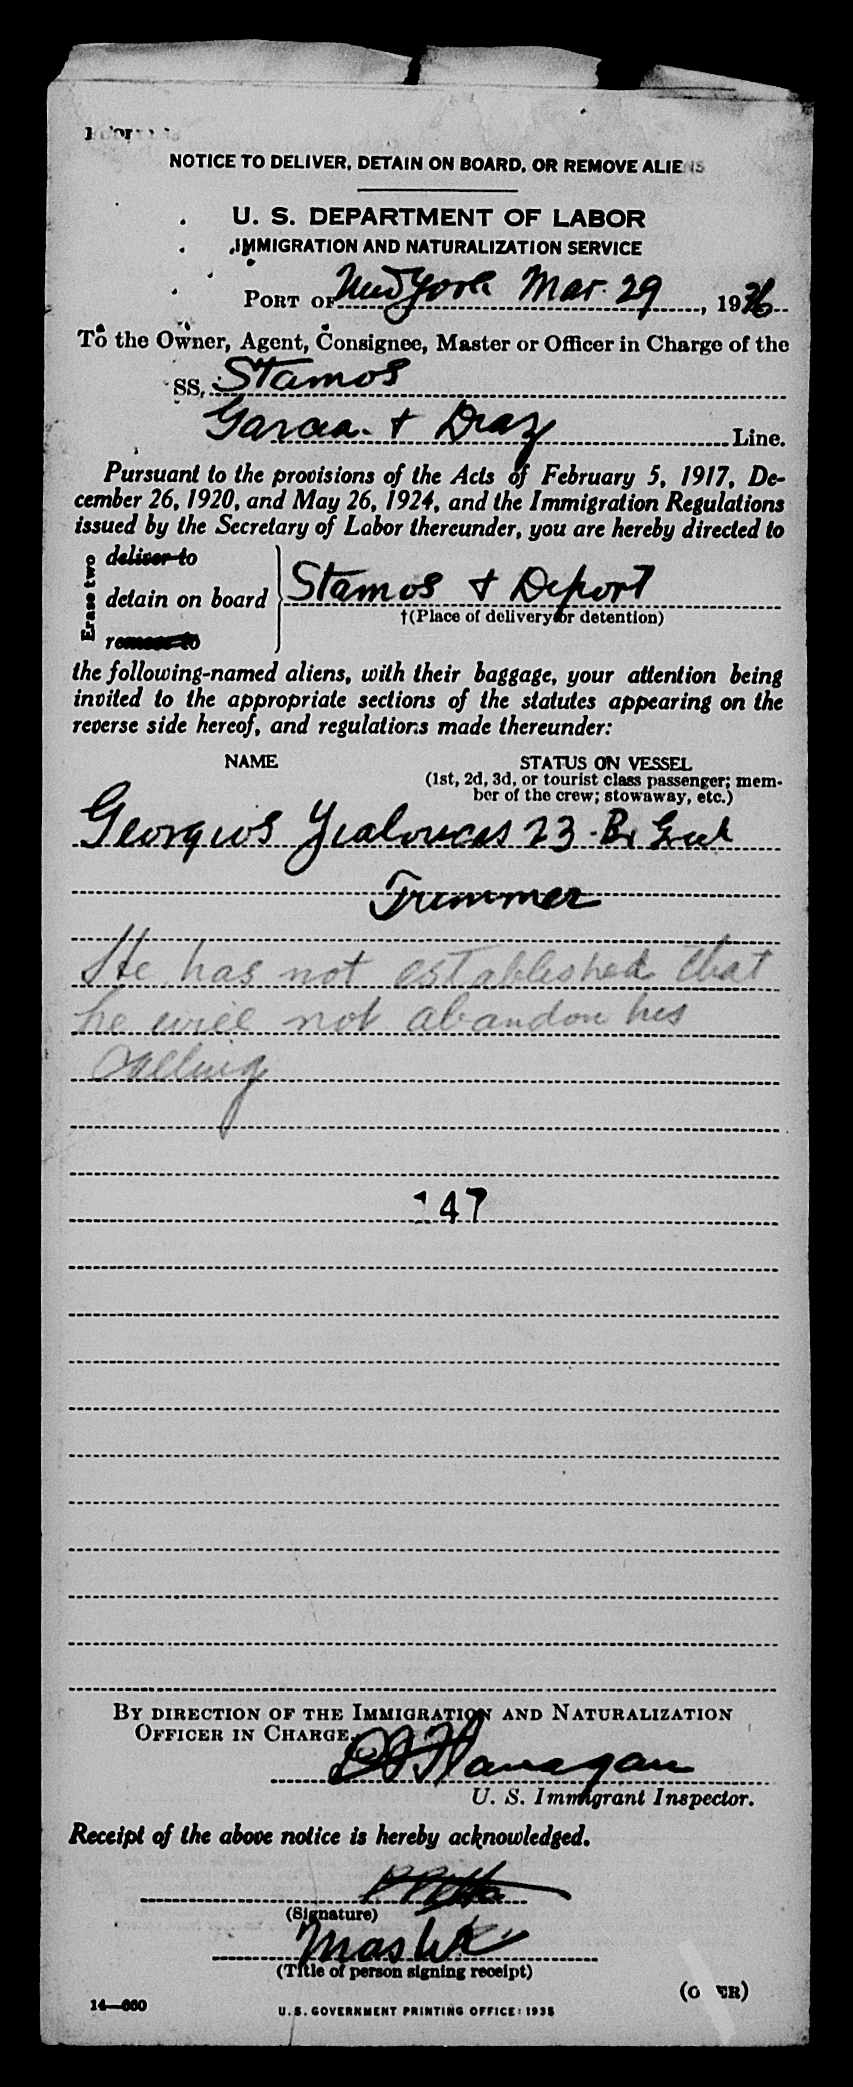 NOTICE TO DELIVER, DETAIN ON BOARD, OR REMOVE ALIENS
U. S. DEPARTMENT OF LABOR
IMMIGRATION AND NATURALIZATION SERVICE
PORT OF New York Mar. 29, 1936
To the Owner, Agent, Consignee, Master or Officer in Charge of the
SS. Stamos
Garcia & Diaz Line.
Pursuant to the provisions of the Acts of February 5, 1917, De-
cember 26, 1920, and May 26, 1924, and the Immigration Regulations
issued by the Secretary of Labor thereunder, you are hereby directed to
Erase two
deliver to
detain on board Stamos & Deport
remove to
†(Place of delivery or detention)
the following-named aliens, with their baggage, your attention being
invited to the appropriate sections of the statutes appearing on the
reverse side hereof, and regulations made thereunder:
NAME STATUS ON VESSEL
(1st, 2d, 3d, or tourist class passenger; mem-
ber of the crew; stowaway, etc.)
Georgios Yialoucas 23 Br Greek
Trimmer
He has not established that
he will not abandon his
calling
147
BY DIRECTION OF THE IMMIGRATION AND NATURALIZATION
OFFICER IN CHARGE.
Flanagan
U. S. Immigrant Inspector.
Receipt of the above notice is hereby acknowledged.
(Signature)
Master
(Title of person signing receipt)
(OVER)
14—660
U. S. GOVERNMENT PRINTING OFFICE: 1935